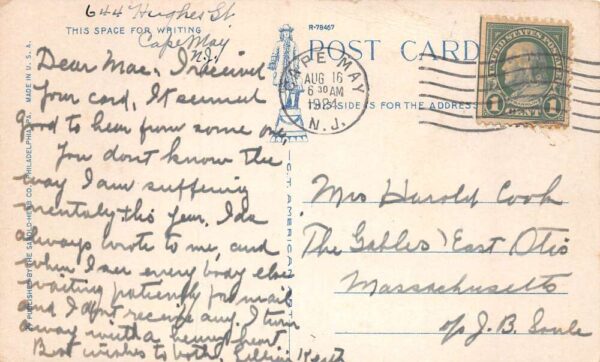 644 Hughes St.
Cape May
N.J.
THIS SPACE FOR WRITING
Dear Mae, I received
your card, It seemed
good to hear from some one,
You don't know the
way I am suffering
mentaly this year. Ida
always wrote to me, and
when I see every body else
waiting patiently for mail
and I don't receive any. I turn
away with a heavy heart.
Best wishes to both. Lillian
R-78467
POST CARD
CAPE MAY
AUG 16
6 30 AM
1924
N.J.
THIS SIDE IS FOR THE ADDRESS
UNITED STATES POSTAGE
1 CENT 1
Mrs Harold Cook
The Gables, East Otis
Massachusetts
c/o J. B. Soule
MADE IN U.S.A.
PUBLISHED BY THE CO., PHILADELPHIA, PA.
C. T. AMERICAN ART